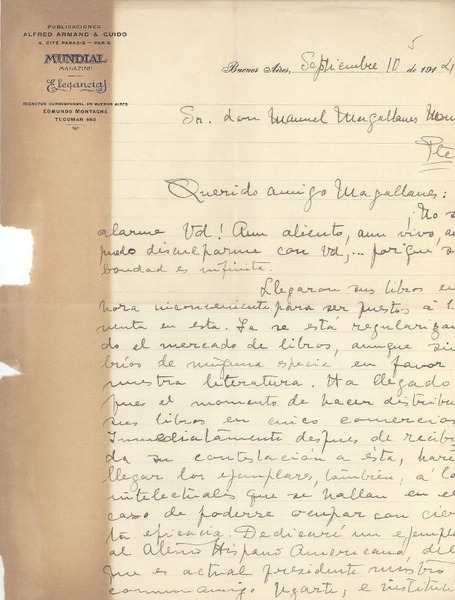 PUBLICACIONES
ALFRED ARMAND & GUIDO
6, CITÉ PARADIS - PARIS
MUNDIAL
MAGAZINE
Elegancias
REDACTOR CORRESPONSAL EN BUENOS AIRES
EDMUNDO MONTAGNE
TUCUMAN 983
Buenos Aires, Septiembre 10 de 191
5
Sr. don Manuel Magallanes Mou
Pte
Querido amigo Magallanes:
¡No s
alarme Vd! Aun aliento, aun vivo, au
puedo disculparme con Vd,... porque s
bondad es infinita.
Llegaron sus libros en
hora inconveniente para ser puestos á l
venta en esta. Ya se está regularizan
do el mercado de libros, aunque sin
bríos de ninguna especie en favor
nuestra literatura. Ha llegado
pues el momento de hacer distribu
sus libros en cinco comercios
Inmediatamente despues de recibi
da su contestación a esta, haré
llegar los ejemplares, también, á lo
intelectuales que se hallan en el
caso de poderse ocupar con cier
ta eficacia. Dedicaré un ejempla
al Ateneo Hispano Americano, del
que es actual presidente nuestro
amigo Ugarte, e institu